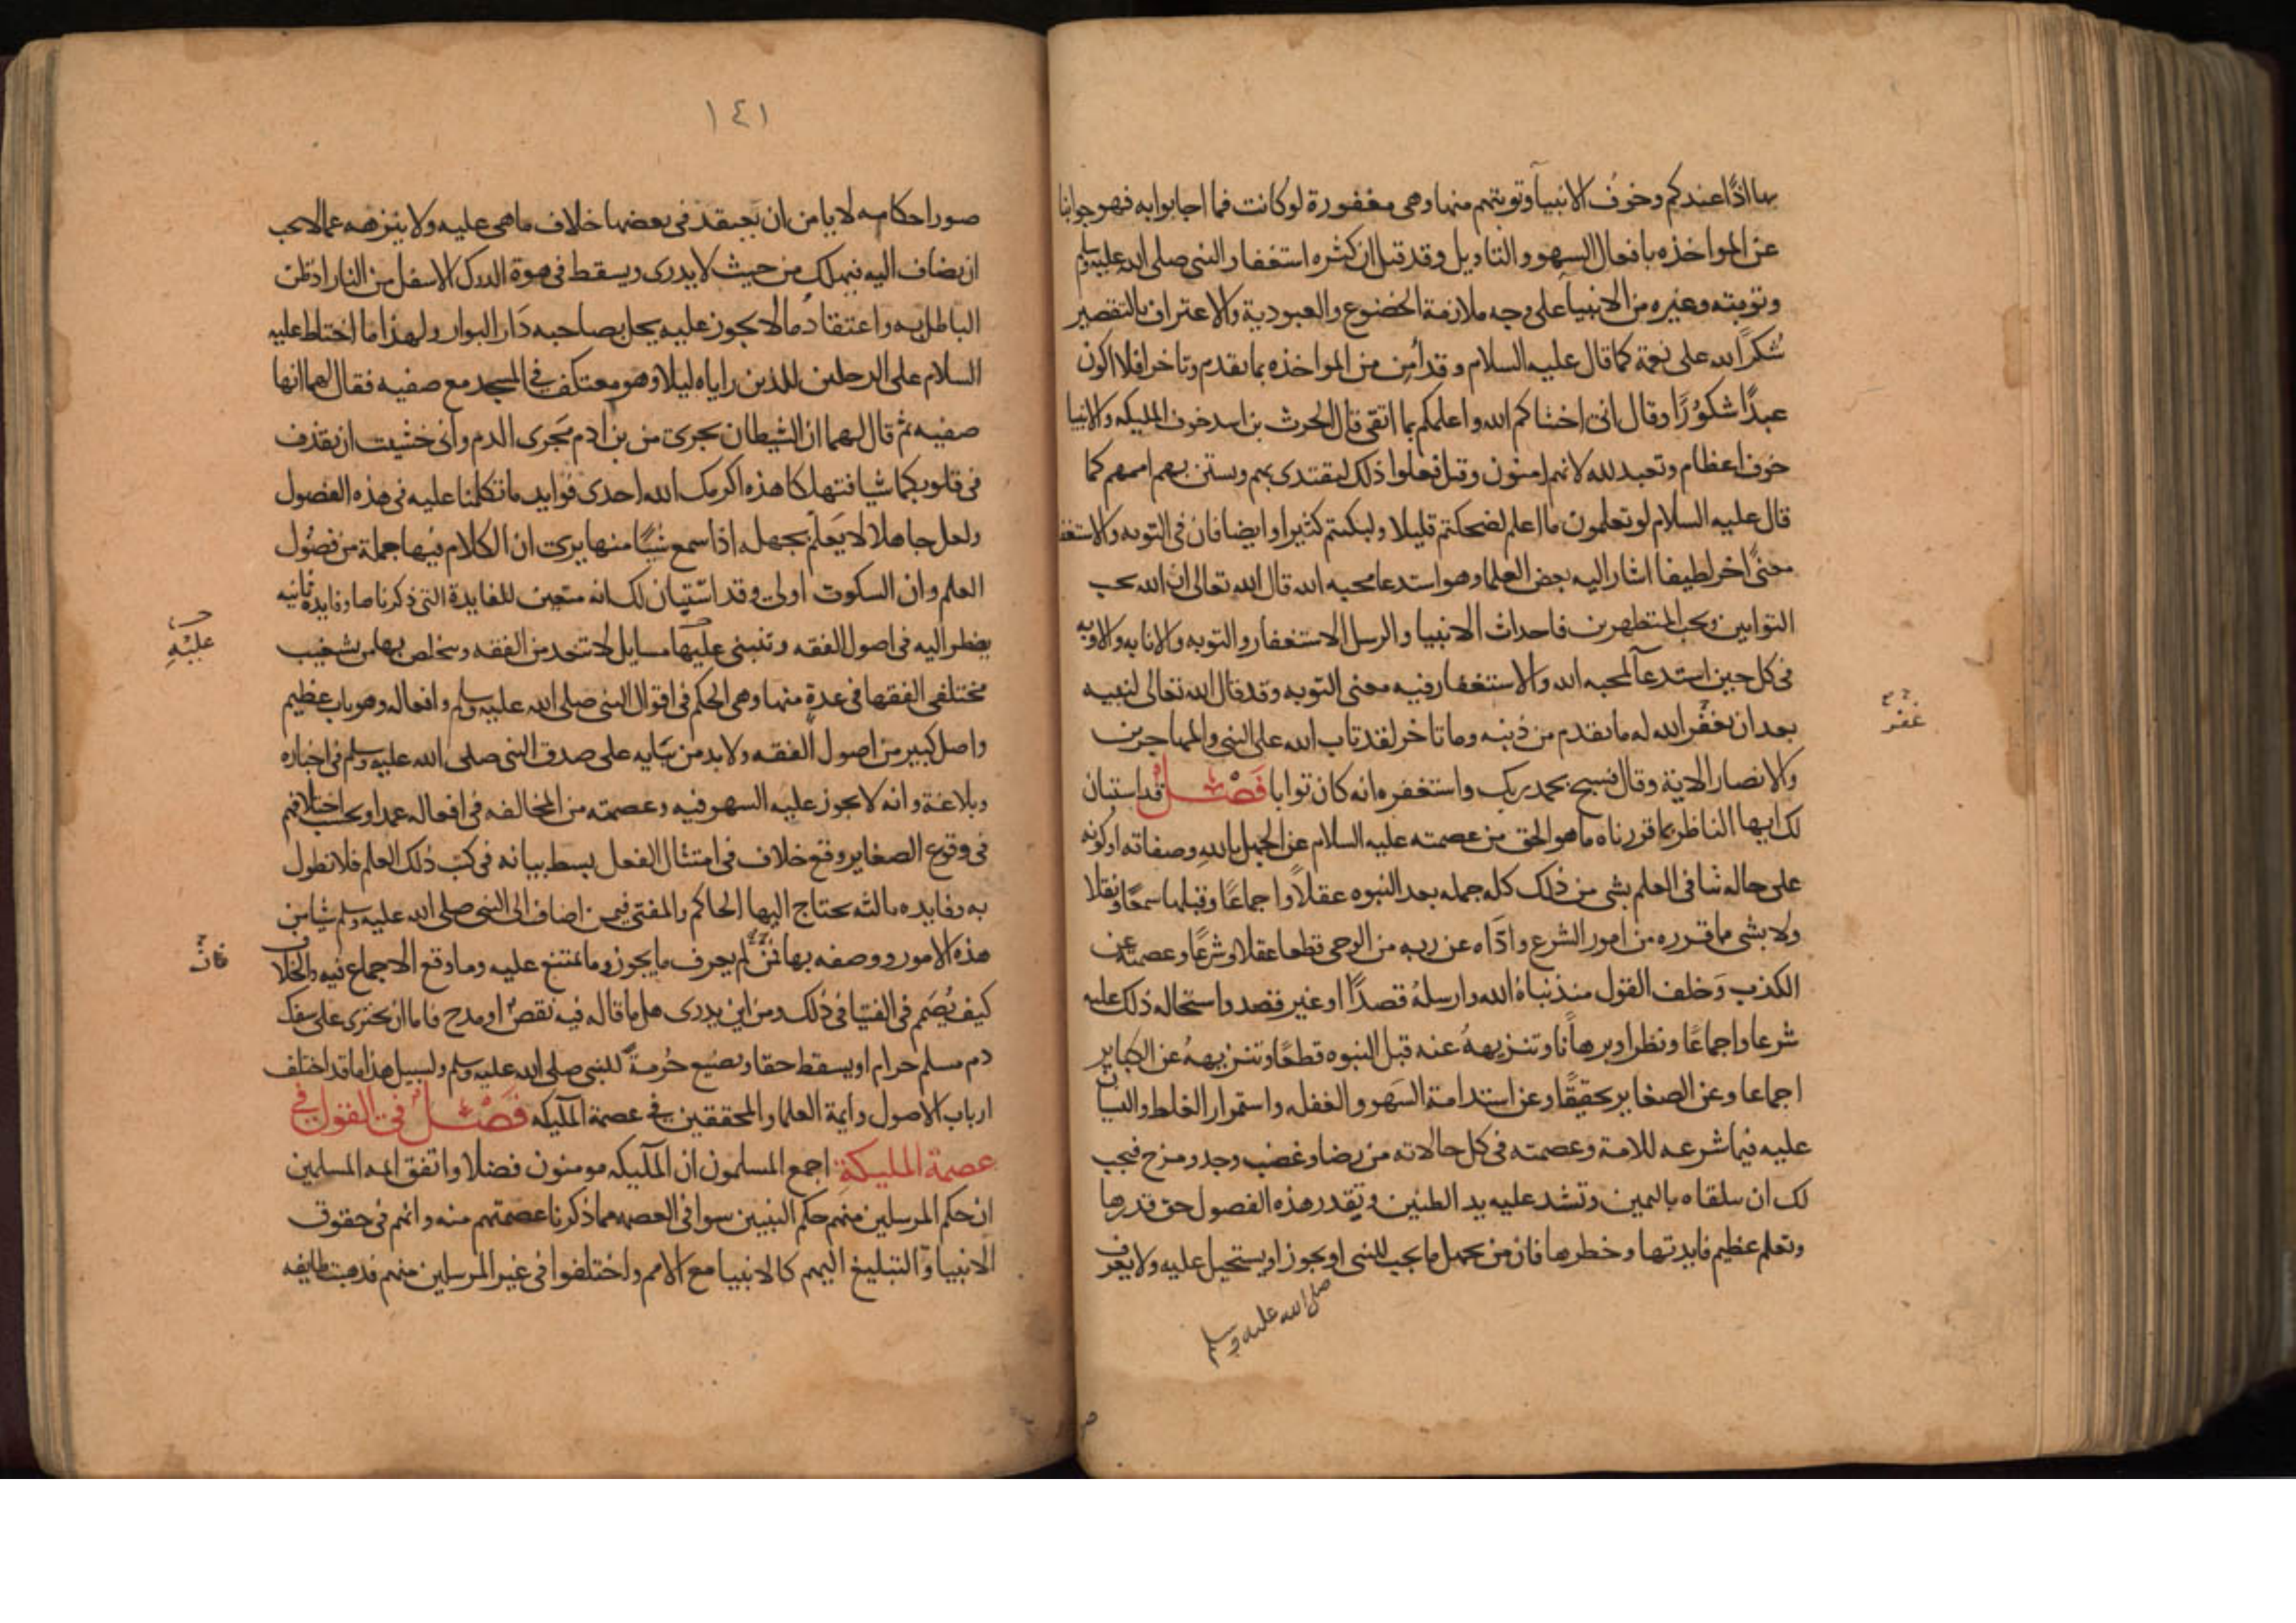 بها اذًا عندكم وخوف الانبيآ وتوبتهم منها وهى مغفورة لو كانت فما اجابوا به فهو جوابنا
عن المواخذه بافعال السهو والتاويل وقد قيل ان كثره استغفار النبى صلى الله عليه وسلم
وتوبته وغيره من الانبيآ على وجه ملازمة الخضوع والعبودية والاعتراف بالتقصير
شكرًا لله على نعمة كما قال عليه السلام وقد أُمِن من المواخذه بما تقدم وتاخر افلا اكون
عبدًا شكورًا وقال انى اخشاكم الله واعلمكم بما اتقى قال الحرث بن اسد خوف المليكه والانبيا
خوف اعظام وتعبد لله لانهم امنون وقيل فعلوا ذلك ليقتدى بهم ويستن بهم اممهم كما
قال عليه السلام لو تعلمون ما اعلم لضحكتم قليلا ولبكيتم كثيرا وايضا فان فى التوبه والاستغفار
معنىً اخر لطيفا اشار اليه بعض العلما وهو استدعا محبه الله قال الله تعالى ان الله يحب
التوابين ويحب المتطهرين فاحداث الانبيا والرسل الاستغفار والتوبه والانابه والاوبه
فى كل حين استدعآ لمحبه الله والاستغفار فيه معنى التوبه وقد قال الله تعالى لنبيه
بعد ان غفر الله له ما تقدم من ذنبه وما تاخر لقد تاب الله على النبى والمهاجرين
والانصار الاية وقال فسبح بحمد ربك واستغفره انه كان توابا فَصْلٌ قد استبان
لك ايها الناظر بما قررناه ما هو الحق من عصمته عليه السلام عن الجهل بالله وصفاته او كونه
على حاله تنافى العلم بشى من ذلك كله جمله بعد النبوه عقلاً واجماعًا وقبلها سمعًا ونقلا
ولا بشى مما قرره من امور الشرع وادّاه عن ربه من الوحى قطعا عقلا وشرعًا وعصمته عن
الكذب وَخلف القول منذ نباهُ الله وارسلهُ قصدًا او غير قصد واستحاله ذلك عليه
شرعا واجماعًا ونظرا وبرهانًا وتنزيههُ عنه قبل النبوه قطعًا وتنزيههُ عن الكباير
اجماعا وعن الصغاير تحقيقًا وعن استدامة السَهو والغفله واستمرار الغلط والنسيان
عليه فيما شرعه للامة وعصمته فى كل حالاته من رضا وغضب وجد ومزح فيجب
لك ان تتلقاه باليمين وتشد عليه يد الظنين وتقدر هذه الفصول حق قدرها
وتعلم عظيم فايدتها وخطرها فان من يجهل ما يجب للنبى او يجوز او يستحيل عليه ولا يعرف
صلى الله عليه وسلم
غفر
١٤١
صور احكامه لا يامن ان يعتقد فى بعضها خلاف ما هى عليه ولا ينزهه عما لا يجب
ان يضاف اليه فيهلك من حيث لا يدرى ويسقط فى هوة الدرك الاسفل من النار اذ ظن
الباطل به واعتقادُ ما لا يجوز عليه يحل بصاحبه دَار البوار ولهذا ما احتاط عليه
السلام على الرجلين للذين راياه ليلا وهو معتكف فى المسجد مع صفيه فقال لهما انها
صفيه ثم قال لهما ان الشيطان يجرى من بن ادم مَجرى الدم وانى خشيت ان يقذف
فى قلوبكما شيا فتهلكا هذه اكرمك الله احدى فوايد ما تكلمنا عليه فى هذه الفصول
ولعل جاهلا لا يَعلم بجهله اذا سمع شيًا منها يرى ان الكلام فيها جملة من فضُول
العلم وان السكوت اولى وقد استبان لك انه متعين للفايدة التى ذكرناها وفايدة ثانيه
يضطر اليه فى اصول الفقه وتنبنى عليها مسايل لا تنعد من الفقه ويتخلص بها من تشغيب
مختلفى الفقها فى عدة منها وهى الحكم فى اقوال النبى صلى الله عليه وسلم وافعاله وهو باب عظيم
واصل كبير من اصول الفقه ولا بد من بنايه على صدق النبى صلى الله عليه وسلم فى اخباره
وبلاغة وانه لا يجوز عليه السهو فيه وعصمته من المخالفه فى افعاله عمدا وبحسب اختلافهم
فى وقوع الصغاير وقع خلاف فى امتثال الفعل بسط بيانه فى كتب ذلك العلم فلا نطول
به وفايده ثالثه يحتاج اليها الحاكم والمفتى فيمن اضاف الى النبى صلى الله عليه وسلم شيا من
هذه الامور ووصفه بها فمن لم يعرف ما يجوز وما يمتنع عليه وما وقع الاجماع فيه والخلاف
كيف يُصَمم فى الفتيا فى ذلك ومن اين يدرى هل ما قاله فيه نقصٌ او مدح فاما ان يجترى على سفك
دم مسلم حرام او يسقط حقا ويضيع حُرمةً للنبى صلى الله عليه وسلم ولسبيل هذا ما قد اختلف
ارباب الاصول وايمة العلما والمحققين فى عصمة المليكه فَصْلٌ فى القول فى
عصمة المليكة اجمع المسلمون ان المليكه مومنون فضلا واتفق ايمه المسلمين
ان حكم المرسلين منهم حكم النبيين سوا فى العصمه مما ذكرنا عصمتهم منه وانهم فى حقوق
الانبيا والتبليغ اليهم كالانبيا مع الامم واختلفوا فى غير المرسلين منهم فذهبت طايفه
عليْهِ
فان